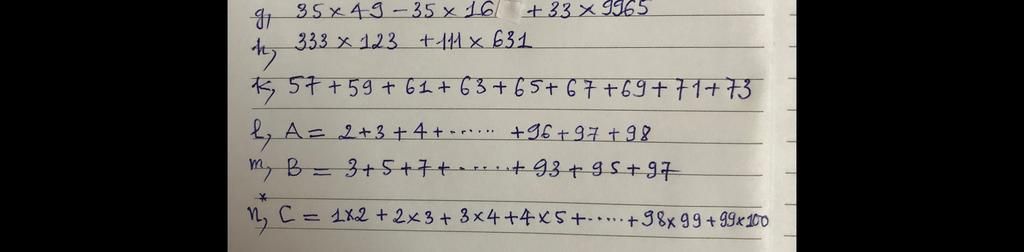 g, 35 × 49 - 35 × 16 + 33 × 9965
h, 333 × 123 + 111 × 631
k, 57 + 59 + 61 + 63 + 65 + 67 + 69 + 71 + 73
l, A = 2 + 3 + 4 + ...... + 96 + 97 + 98
m, B = 3 + 5 + 7 + ...... + 93 + 95 + 97
n,* C = 1×2 + 2×3 + 3×4 + 4×5 + ...... + 98×99 + 99×100